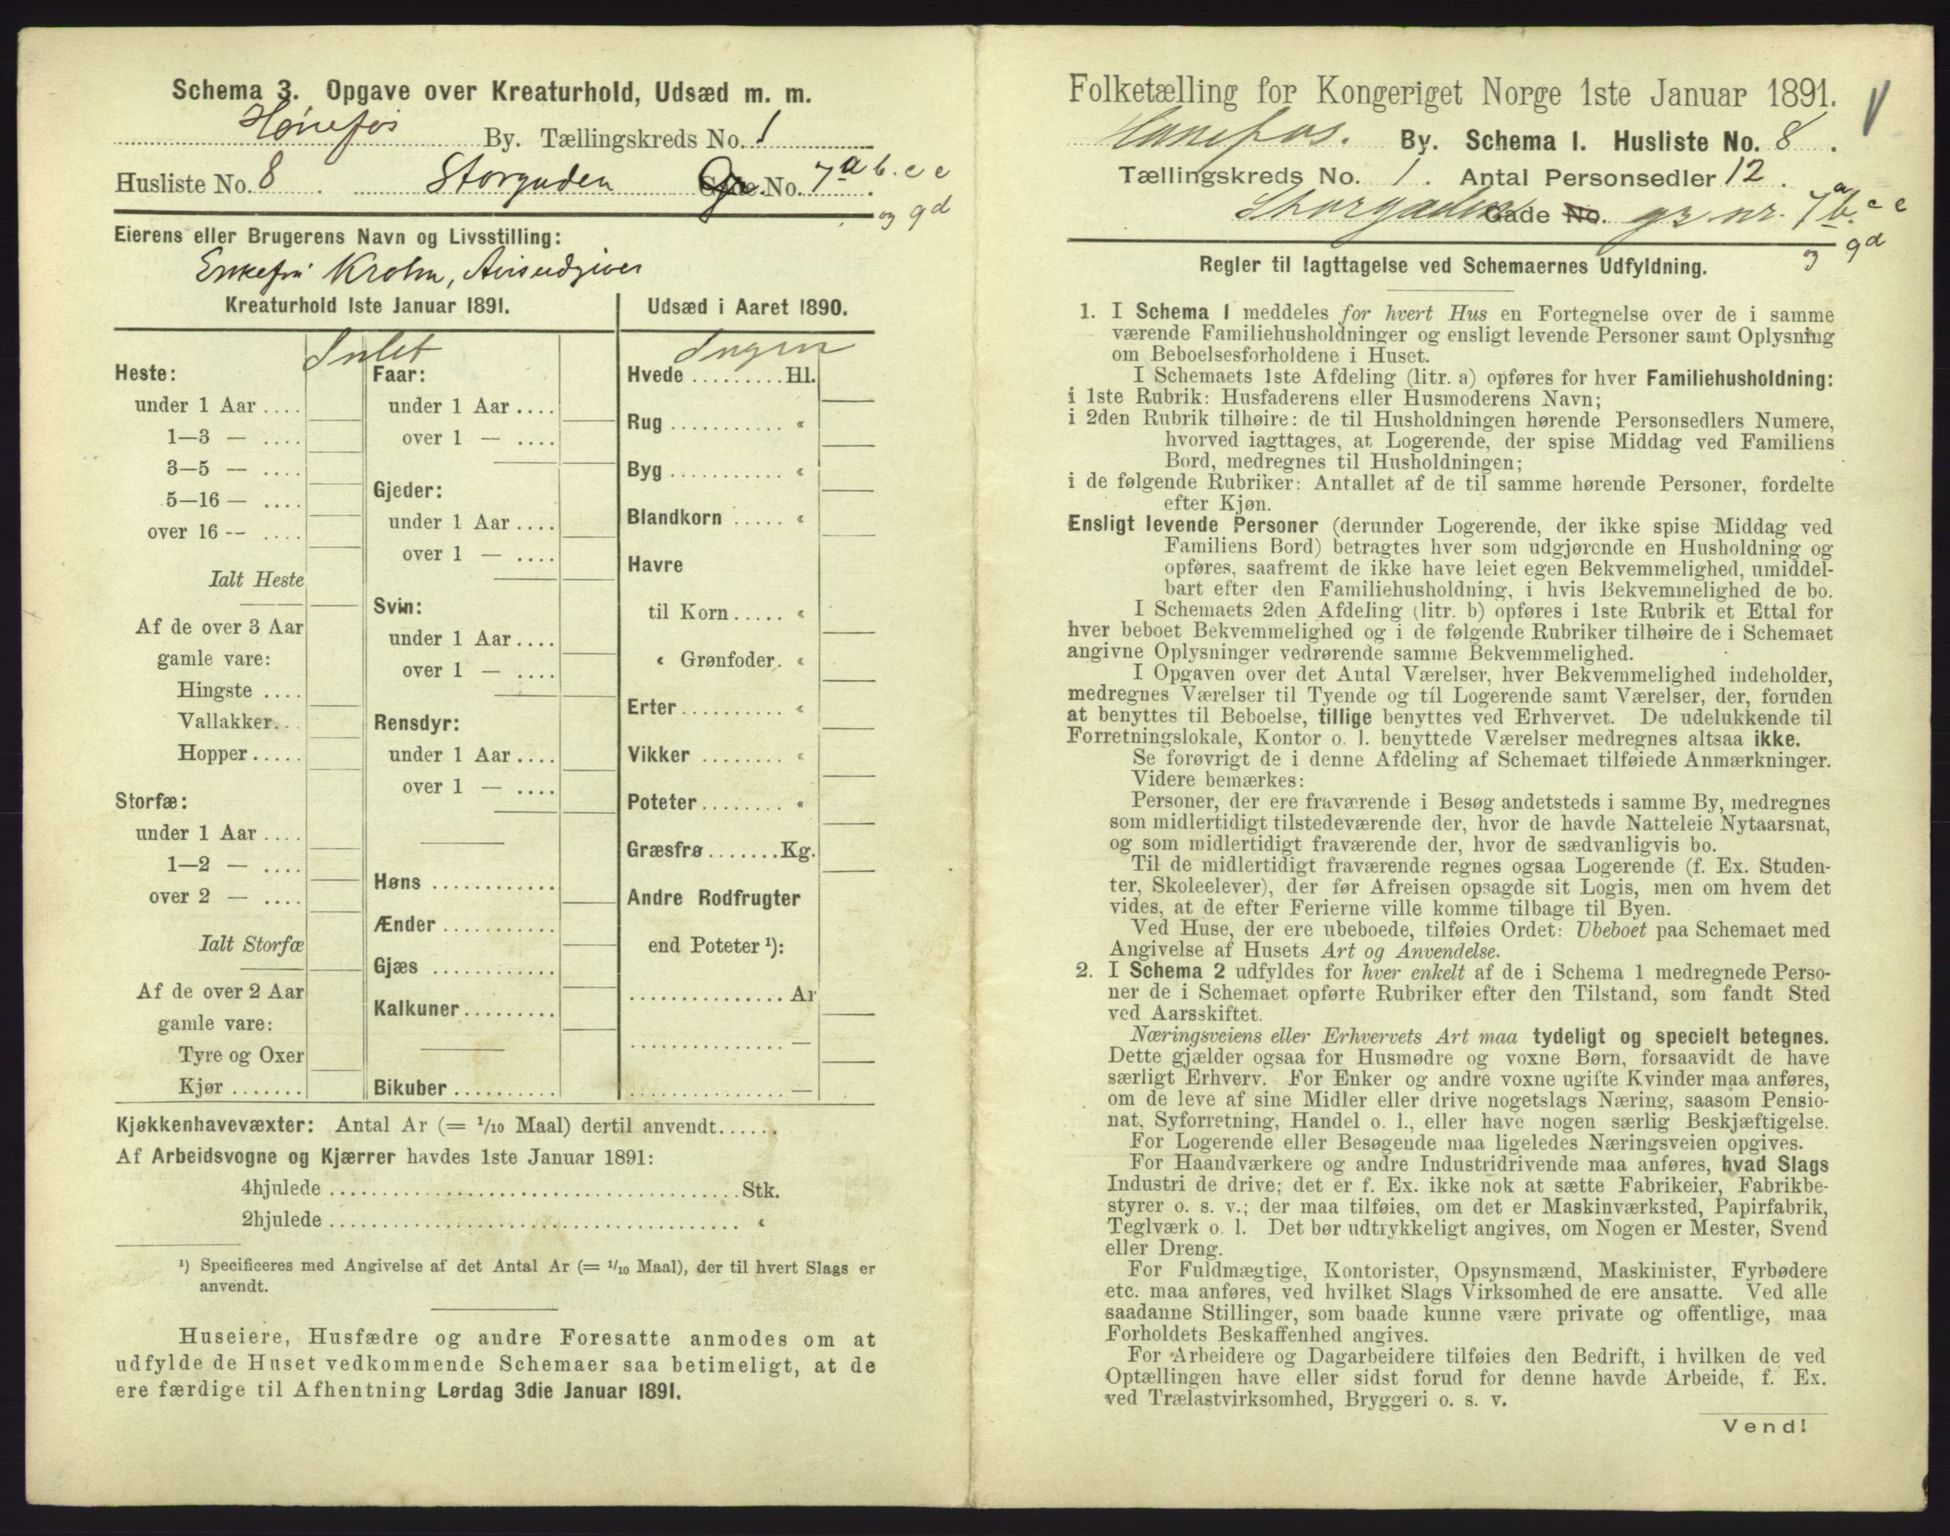 Schema 3. Opgave over Kreaturhold, Udsæd m. m.
Hønefos By. Tællingskreds No. 1
Husliste No. 8 . Storgaden Gade No. 7a b. c e
og 9d
Eierens eller Brugerens Navn og Livsstilling:
Enkefru Krohn, Avisudgiver
Kreaturhold 1ste Januar 1891.
Intet
Heste:
under 1 Aar ....
1—3 — ....
3—5 — ....
5—16 — ....
over 16 -- ....
Ialt Heste
Af de over 3 Aar
gamle vare:
Hingste ....
Vallakker...
Hopper.....
Storfæ:
under 1 Aar ....
1—2 — ....
over 2 — ....
Ialt Storfæ
Af de over 2 Aar
gamle vare:
Tyre og Oxer
Kjør .......
Faar:
under 1 Aar ....
over 1 — ....
Gjeder:
under 1 Aar ....
over 1 — ....
Svin:
under 1 Aar ....
over 1 — ....
Rensdyr:
under 1 Aar ....
over 1 — ....
Høns ............
Ænder ...........
Gjæs ............
Kalkuner.........
Bikuber ..........
Udsæd i Aaret 1890.
Ingen
Hvede .........Hl.
Rug ........... «
Byg ........... «
Blandkorn ..... «
Havre
til Korn..... «
« Grønfoder. «
Erter.......... «
Vikker ........ «
Poteter........ «
Græsfrø.......Kg.
Andre Rodfrugter
end Poteter ¹):
...............Ar
............... —
............... —
Kjøkkenhavevæxter: Antal Ar (= 1/10 Maal) dertil anvendt......
Af Arbeidsvogne og Kjærrer havdes 1ste Januar 1891:
4hjulede .......................................Stk.
2hjulede ....................................... «
¹) Specificeres med Angivelse af det Antal Ar (= 1/10 Maal), der til hvert Slags er
anvendt.
Huseiere, Husfædre og andre Foresatte anmodes om at
udfylde de Huset vedkommende Schemaer saa betimeligt, at de
ere færdige til Afhentning Lørdag 3die Januar 1891.
Folketælling for Kongeriget Norge 1ste Januar 1891.
Hønefos. By. Schema I. Husliste No. 8 .
Tællingskreds No. 1 . Antal Personsedler 12 .
Storgaden Gade No. gr nr. 7a b. c e
og 9d
Regler til Iagttagelse ved Schemaernes Udfyldning.
1. I Schema I meddeles for hvert Hus en Fortegnelse over de i samme
værende Familiehusholdninger og ensligt levende Personer samt Oplysning
om Beboelsesforholdene i Huset.
I Schemaets 1ste Afdeling (litr. a) opføres for hver Familiehusholdning:
i 1ste Rubrik: Husfaderens eller Husmoderens Navn;
i 2den Rubrik tilhøire: de til Husholdningen hørende Personsedlers Numere,
hvorved iagttages, at Logerende, der spise Middag ved Familiens
Bord, medregnes til Husholdningen;
i de følgende Rubriker: Antallet af de til samme hørende Personer, fordelte
efter Kjøn.
Ensligt levende Personer (derunder Logerende, der ikke spise Middag ved
Familiens Bord) betragtes hver som udgjørende en Husholdning og
opføres, saafremt de ikke have leiet egen Bekvemmelighed, umiddel-
bart efter den Familiehusholdning, i hvis Bekvemmelighed de bo.
I Schemaets 2den Afdeling (litr. b) opføres i 1ste Rubrik et Ettal for
hver beboet Bekvemmelighed og i de følgende Rubriker tilhøire de i Schemaet
angivne Oplysninger vedrørende samme Bekvemmelighed.
I Opgaven over det Antal Værelser, hver Bekvemmelighed indeholder,
medregnes Værelser til Tyende og til Logerende samt Værelser, der, foruden
at benyttes til Beboelse, tillige benyttes ved Erhvervet. De udelukkende til
Forretningslokale, Kontor o. l. benyttede Værelser medregnes altsaa ikke.
Se forøvrigt de i denne Afdeling af Schemaet tilføiede Anmærkninger.
Videre bemærkes:
Personer, der ere fraværende i Besøg andetsteds i samme By, medregnes
som midlertidigt tilstedeværende der, hvor de havde Natteleie Nytaarsnat,
og som midlertidigt fraværende der, hvor de sædvanligvis bo.
Til de midlertidigt fraværende regnes ogsaa Logerende (f. Ex. Studen-
ter, Skoleelever), der før Afreisen opsagde sit Logis, men om hvem det
vides, at de efter Ferierne ville komme tilbage til Byen.
Ved Huse, der ere ubeboede, tilføies Ordet: Ubeboet paa Schemaet med
Angivelse af Husets Art og Anvendelse.
2. I Schema 2 udfyldes for hver enkelt af de i Schema 1 medregnede Perso-
ner de i Schemaet opførte Rubriker efter den Tilstand, som fandt Sted
ved Aarsskiftet.
Næringsveiens eller Erhvervets Art maa tydeligt og specielt betegnes.
Dette gjælder ogsaa for Husmødre og voxne Børn, forsaavidt de have
særligt Erhverv. For Enker og andre voxne ugifte Kvinder maa anføres,
om de leve af sine Midler eller drive nogetslags Næring, saasom Pensio-
nat, Syforretning, Handel o. l., eller have nogen særlig Beskjæftigelse.
For Logerende eller Besøgende maa ligeledes Næringsveien opgives.
For Haandværkere og andre Industridrivende maa anføres, hvad Slags
Industri de drive; det er f. Ex. ikke nok at sætte Fabrikeier, Fabrikbe-
styrer o. s. v.; der maa tilføies, om det er Maskinværksted, Papirfabrik,
Teglværk o. l. Det bør udtrykkeligt angives, om Nogen er Mester, Svend
eller Dreng.
For Fuldmægtige, Kontorister, Opsynsmænd, Maskinister, Fyrbødere
etc. maa anføres, ved hvilket Slags Virksomhed de ere ansatte. Ved alle
saadanne Stillinger, som baade kunne være private og offentlige, maa
Forholdets Beskaffenhed angives.
For Arbeidere og Dagarbeidere tilføies den Bedrift, i hvilken de ved
Optællingen have eller sidst forud for denne havde Arbeide, f. Ex.
ved Trælastvirksomhed, Bryggeri o. s. v.
Vend!